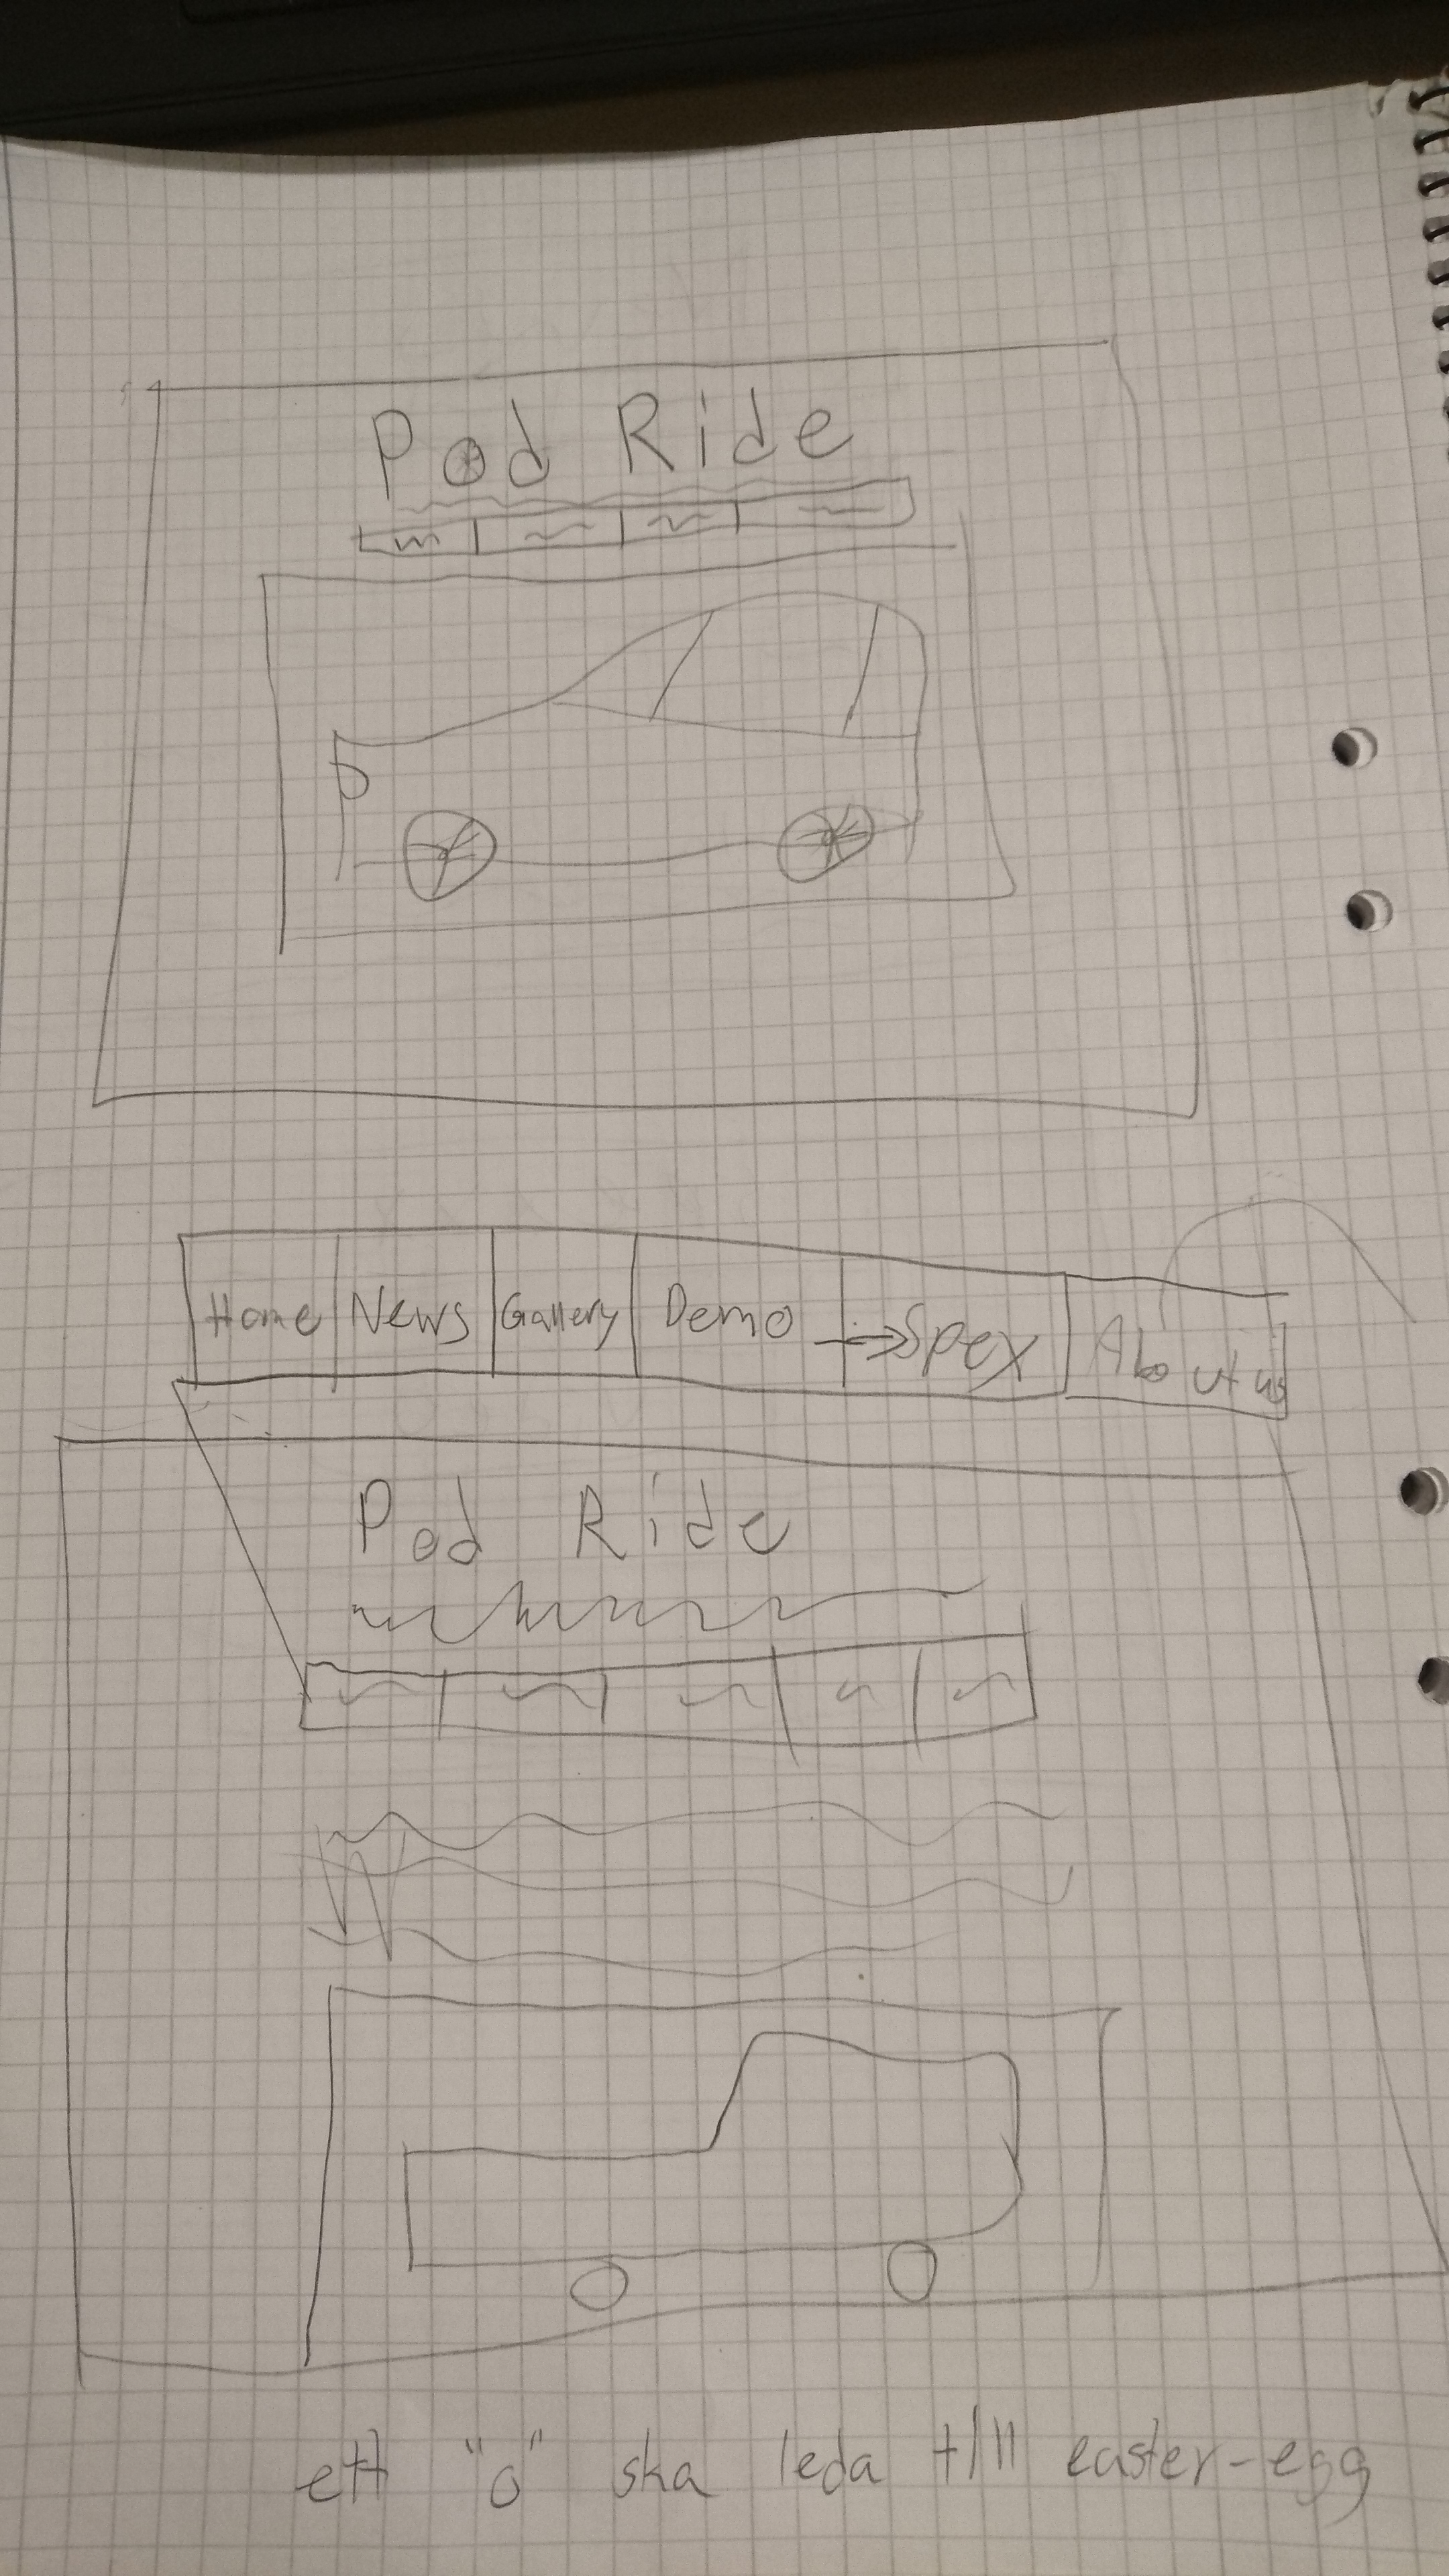 Pod Ride
Home News Gallery Demo Spex About us
Pod Ride
ett "o" ska leda till easter-egg